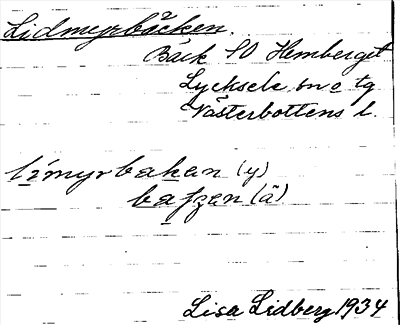 Lidmyrbäcken.
Bäck SO Hemberget
Lycksele sn o tg
Västerbottens l.
bakan (y)
(ä)
Lisa Lidberg 1934